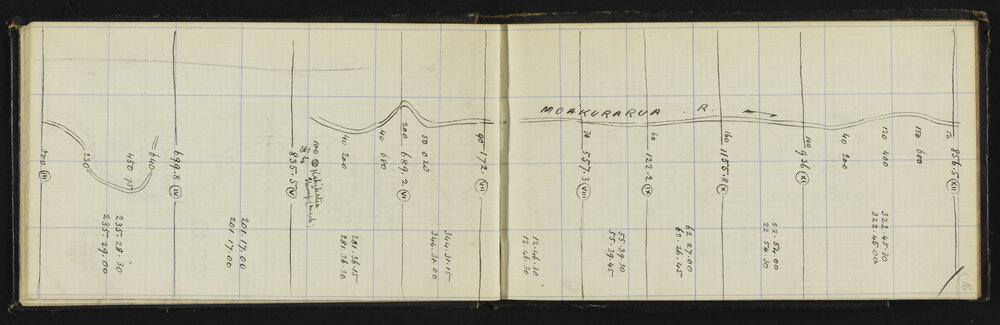 MOAKURARUA R.
200 (III)
230
450 75
640
699.8 (IV)
835.5 (V)
100
Kahikatia
40 200
40 680
200 689.2 (VI)
50 020
90 172. (VII)
70 557.3 (VIII)
60 122.2 (IX)
160 1155.8 (X)
100 936 (XI)
40 200
120 400
150 600
50 856.5 (XII)
235.28.30
235.29.00
201.17.00
201.17.00
281.36.15
281.36.30
344.31.15
344.31.00
12.46.30
12.46.30
55.39.30
55.39.45
62.27.00
62.26.45
22.54.00
22.54.30
322.45.30
322.45.00